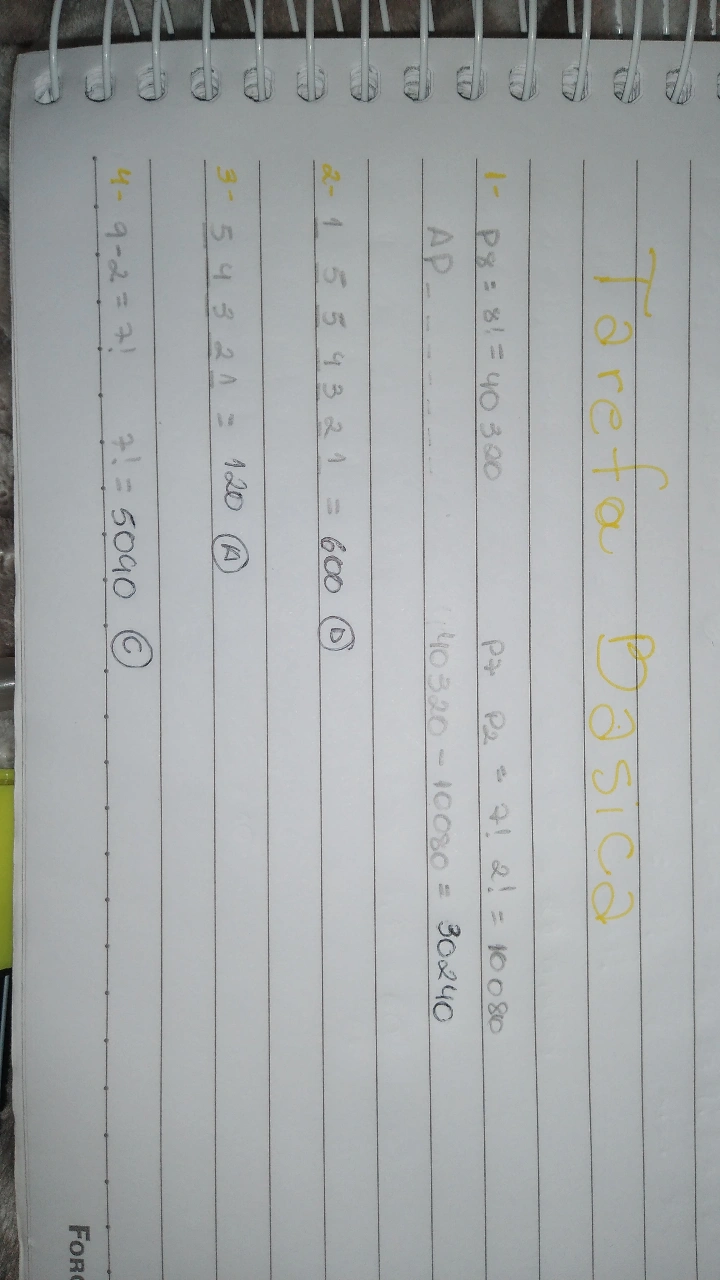 Tarefa Básica
1- P8 = 8! = 40320 P7 P2 = 7! 2! = 10080
AP- - - - - - - 40320 - 10080 = 30240
2- 1 5 5 4 3 2 1 = 600 (D)
3- 5 4 3 2 1 = 120 (A)
4- 9-2 = 7! 7! = 5040 (C)
FORO